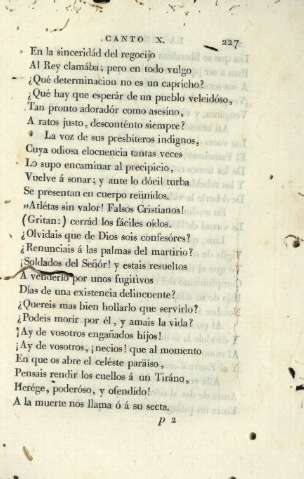 CANTO X. 227
En la sinceridád del regocijo
Al Rey clamába; pero en todo vulgo
¿Qué determinacion no es un capricho?
¿Qué hay que esperár de un pueblo veleidóso,
Tan pronto adoradór como asesino,
A ratos justo, descontento siempre?
La voz de sus presbíteros indignos,
Cuya odiosa elocuencia tantas veces
Lo supo encaminar al precipicio,
Vuelve á sonar; y ante lo dócil turba
Se presentan en cuerpo reünidos.
»Atlétas sin valor! Falsos Cristianos!
(Gritan:) cerrád los fáciles oídos.
¿Olvidais que de Dios sois confesóres?
¿Renunciais á las palmas del martirio?
¡Soldados del Señór! y estais resueltos
A venderlo por unos fugitivos
Días de una existencia delincuente?
¿Quereis mas bien hollarlo que servirlo?
¿Podeis morir por él, y amais la vida?
¡Ay de vosotros engañados hijos!
¡Ay de vosotros, ¡necios! que al momento
En que os abre el celéste paraíso,
Pensais rendir los cuellos á un Tiráno,
Herége, poderóso, y ofendido!
A la muerte nos llama ó á su secta.
p 2